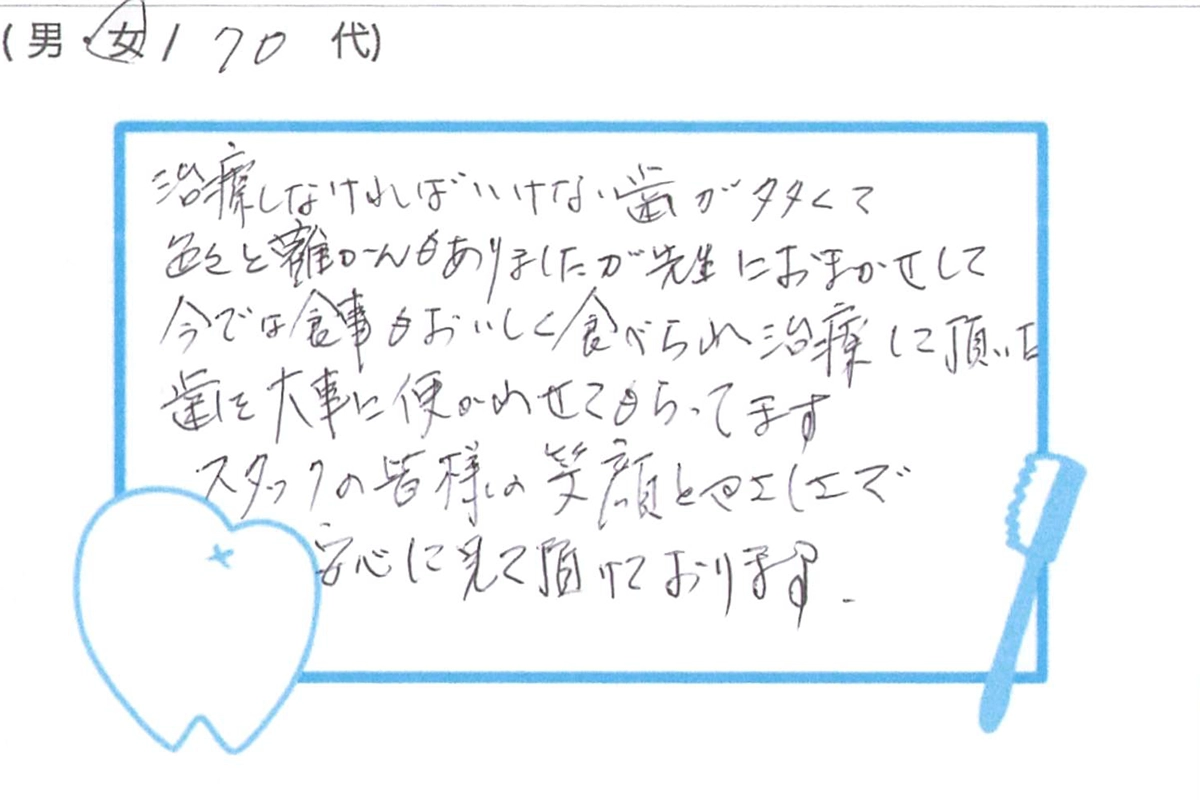 (男・女/70代)
治療しなければいけない歯が多くて
色々と難かんもありましたが先生におまかせして
今では食事もおいしく食べられ治療して頂いた
歯を大事に使かわせてもらってます
スタッフの皆様の笑顔とやさしさで
安心して見て頂けております.